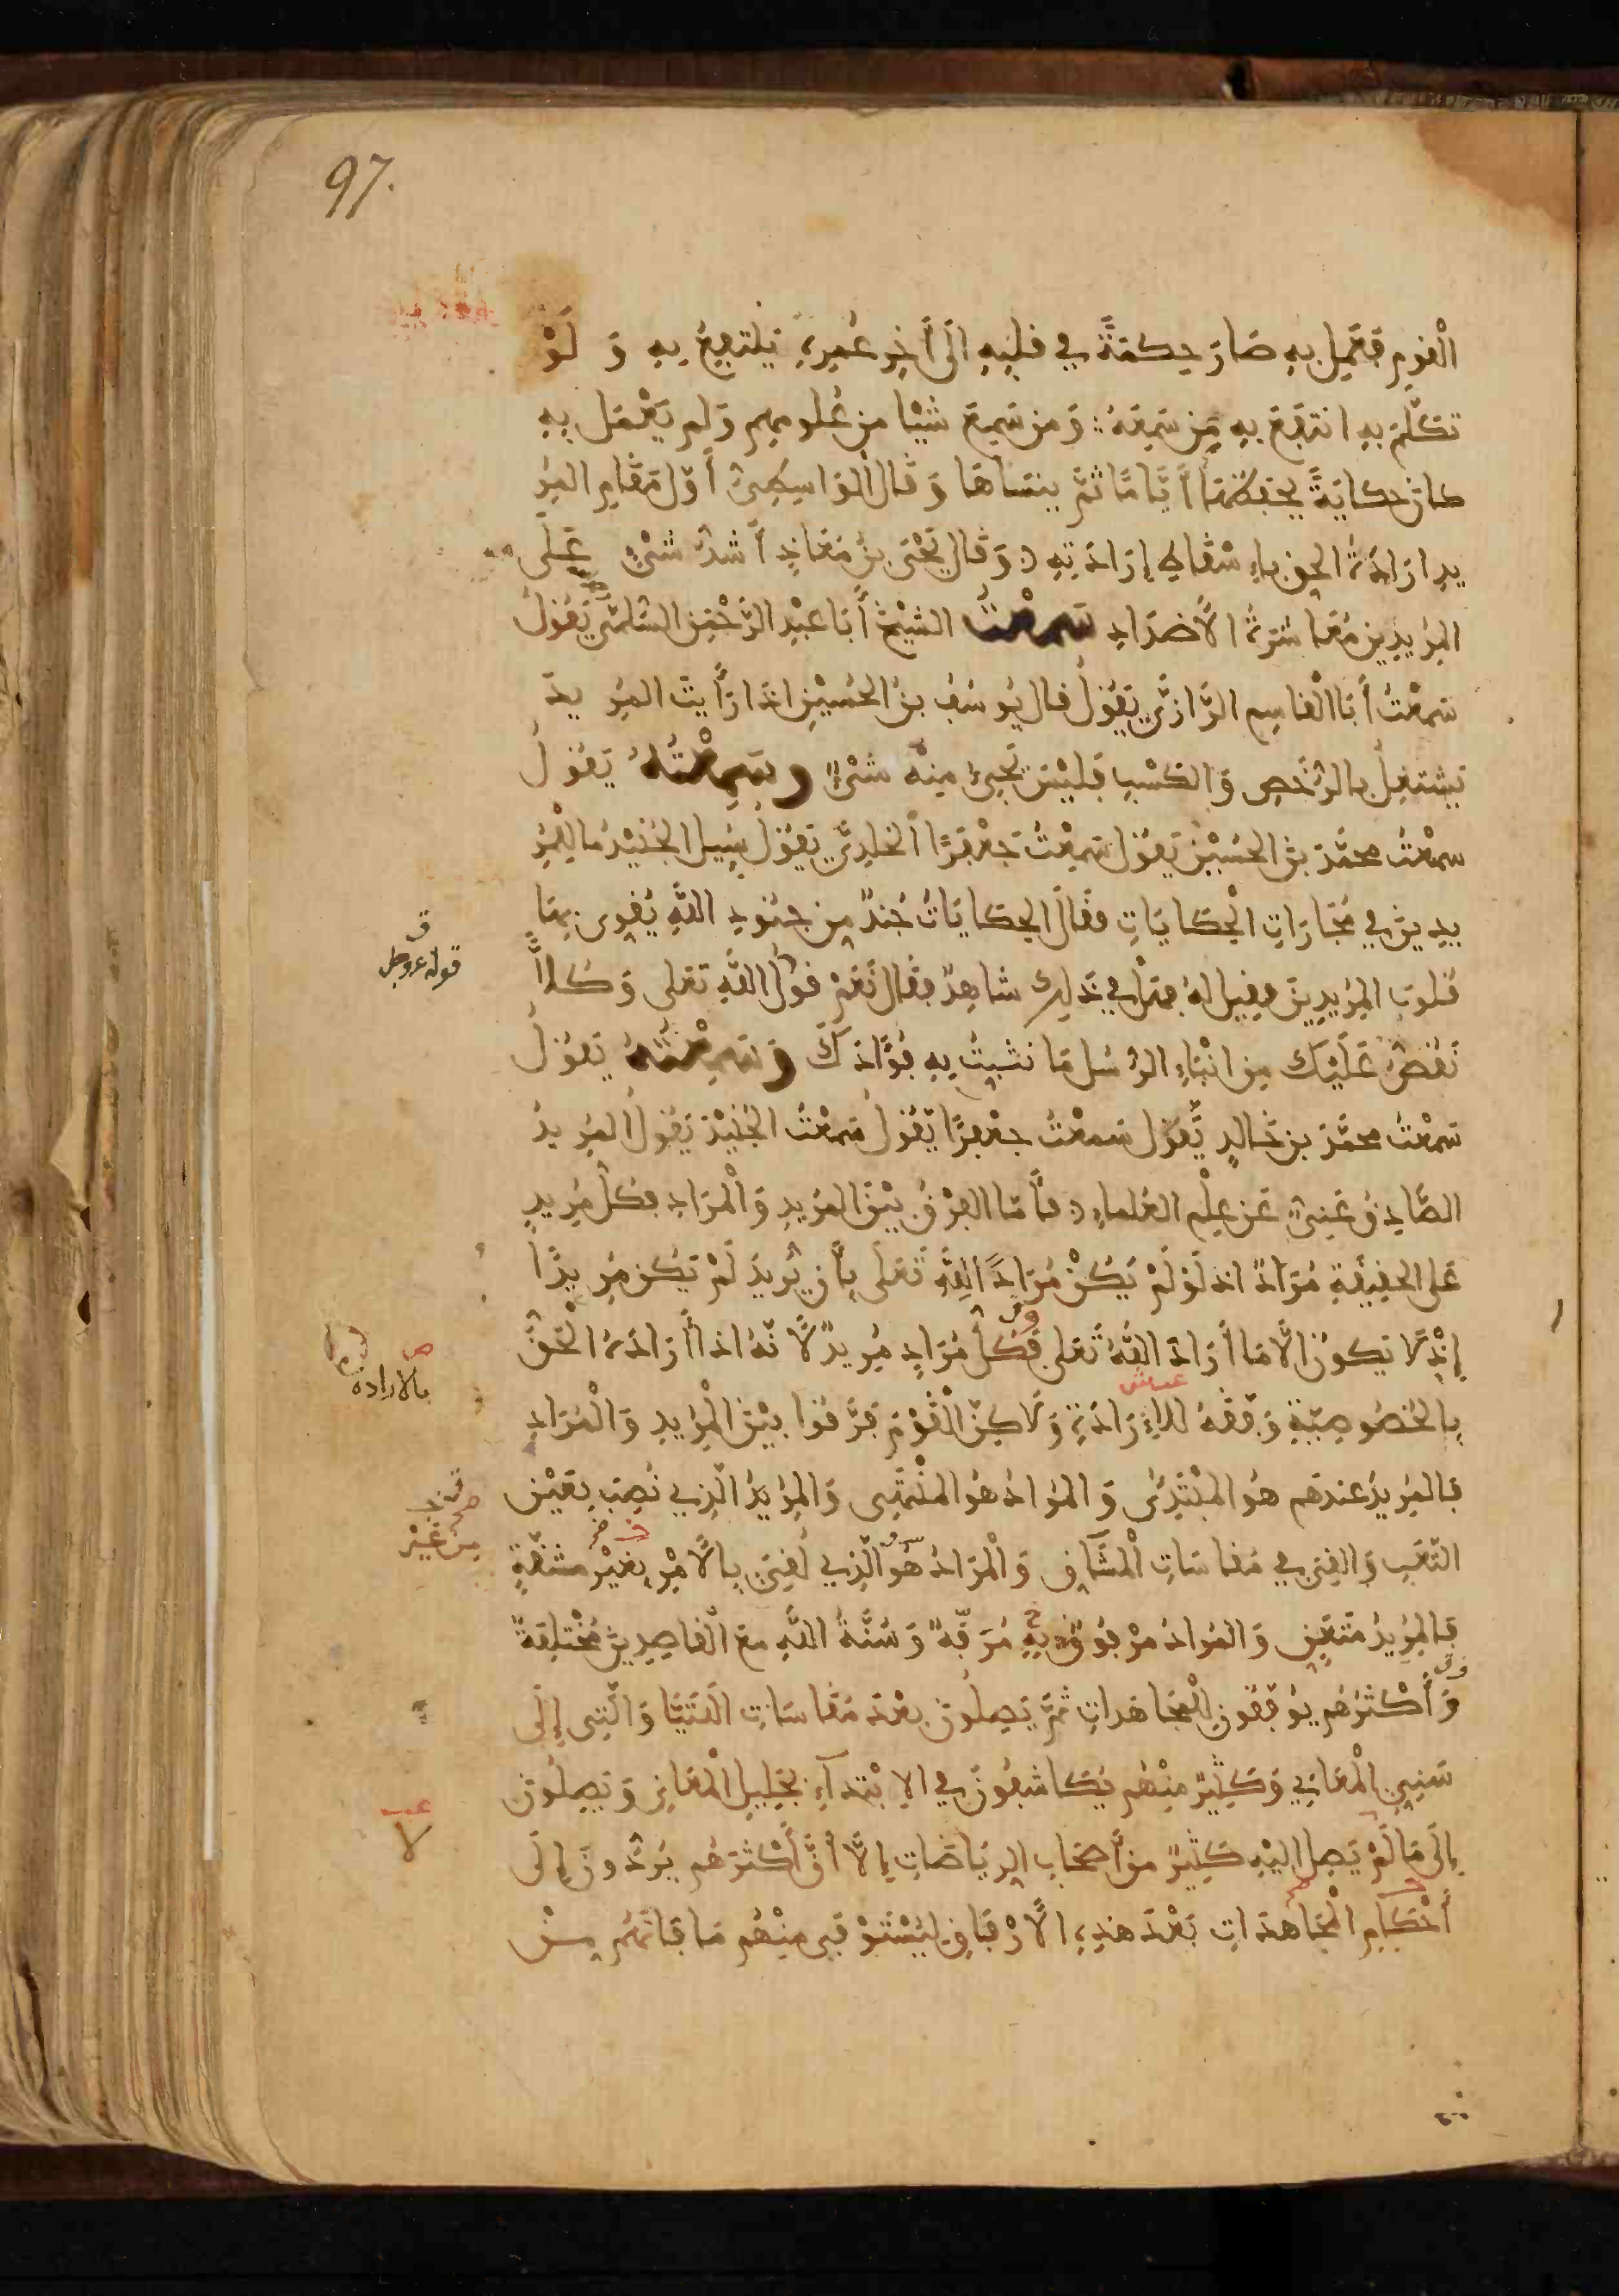 97.
الْقومِ فَعَمِل بهِ صَارَ حِكمَةً في قلبِهِ الَى أَخِرِ عُمرِهِ يَنتَفِعُ بِهِ وَ لَوْ
تكَلَّمَ بِهِ انتَفَعَ بِهِ مَن سَمِعَهُ وَمن سَمِعَ شيْئا من عُلومهم وَلم يَعْمَل بِهِ
كانَ حكايَةً يحفظهَا أَيَّامًا ثمَّ ينسَاهَا وَقَال الْوَاسِطِىُّ أوّل مَقَامِ المُرِ
يدِ ارَادَةُ الحق بإِسْقاطِ إِرَادَتِهِ وَقَال يَحْيَى بنُ مُعَاذٍ أَشدُّ شىْءٍ عَلَى
المُرِيدِين مُعَاشرَةُ الأضدَادِ سَمِعْتُ الشيْخ أبَا عَبْدِ الرَّحْمَن السُّلَمِىَّ يَقُولُ
سَمِعْتُ أبَا الْقاسِم الرَّازِىَّ يَقُولُ قال يُوسُفُ بنُ الحُسَيْن اذَا رَأيتَ المُرِ يدَ
يَشتغِلُ بالرُّخَصِ وَالكسْبِ فَليْسَ يَجِىءُ مِنْهُ شىْءٌ وَسَمِعْتُهُ يَقُولُ
سمعْتُ محمَّدَ بنَ الحُسَيْن يَقُولُ سَمِعْتُ جَعْفَرًا الخلدِىَّ يَقُولُ سُيِل الجُنَيْدُ ما لِلْمُرِ
يدِينَ في مُجَارَاتِ الْحِكَايَاتِ فقَالَ الحِكَايَاتُ جُندٌ مِن جنُودِ اللَّهِ يُقوِى بهَا
قُلوبَ المُرِيدِينَ فقِيل لهُ فهَل في ذَلِك شاهِدٌ فقال نَعَمْ قوْلُ اللَّهِ تعَلى وَكُلاًّ
قوله عز وجل
نَقُصُّ عَلَيْك مِن انْبَاءِ الرُّسُل مَا نثبِّتُ بِهِ فُؤَادَكَ وَسَمِعْتُهُ يَقُولُ
سَمِعْتُ محمَّدَ بن خَالدٍ يَقُول سَمعْتُ جعْفَرًا يَقُولُ سَمعْتُ الجُنَيْدَ يَقُولُ المُرِيدُ
الصَّادِقُ غَنِىٌّ عَن عِلْمِ العُلماءِ فأَمَّا الفرْقُ بيْنَ المُرِيدِ وَالْمُرَادِ فكلُّ مُرِيدٍ
عَلى الحَقِيقَةِ مُرَادٌ اذ لَوْ لَمْ يَكُنْ مُرَادَ اللَّهِ تَعَلَى بأَن يُرِيدَ لَمْ يَكُن مُرِيدًا
إِذْ لا يكونُ الَّا مَا أَرَادَ اللَّهُ تَعَلى فكُلُّ مُرَادٍ مُرِيدٌ لأَنَّهُ اذا أَرَادَهُ الْحَقُّ
ص
بالارادة
بِالخُصُوصِيَّةِ وَفقَهُ للاِرَادَةِ وَلَاكِنَّ الْقَوْمَ فَرَّقُوا بَيْنَ الْمُرِيدِ وَالْمُرَادِ
فالمُرِيدُ عندَهم هُوَ المبْتَدِى وَالمُرَادُ هُوَ المنْتَهِى وَالمُرِيدُ الَّذِي نُصِبَ بِعَيْن
التّعَبِ وَأُلقِىَ في مُقاسَاتِ الْمشَاقِّ وَالْمُرَادُ هُوَ الَّذِي لُقِىَ بالأمْرِ بغَيْرِ مشقّةٍ
مِن غَيْر
فالمُرِيدُ مُتَعَنٍّ وَالمُرَادُ مَرْفُوقٌ بِهِ مُرَفَّهٌ وَسُنَّةُ اللَّهِ مَعَ الْقاصِدِينَ مُخْتلِفَةٌ
وَأَكْثَرُهُم يُوَفَّقُونَ لِلْمُجَاهَداتِ ثمَّ يَصِلُونَ بَعْدَ مُقَاسَاتِ اللَّتَيَّا وَالَّتِى إِلَى
سَنِيِّ الْمعَانِي وَكثِيرٌ منْهُم يكَاشفُونَ في الابْتدآءِ بجَلِيلِ الْمعَانِي وَيَصِلُونَ
لا
إِلَى مَا لَمْ يَصِل اليْهِ كَثِيرٌ مِنْ أَصحَابِ الرِيَاضَاتِ إِلَّا أَنَّ أَكْثرَهُم يُرَدُّونَ إِلَى
أَحْكَامِ الْمُجَاهَدَاتِ بَعْدَ هَذِهِ الأرْفَاقِ لِيَسْتَوْفِى مِنْهُم مَا فَاتَهُم مِنْ